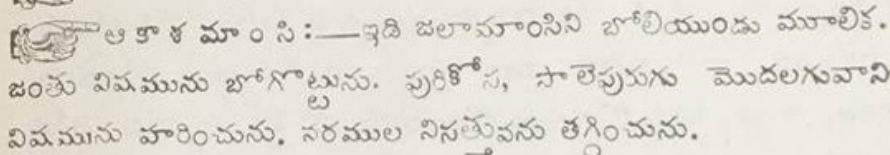 ఆ కా శ మా ం సి :—ఇది జటామాంసిని బోలియుండు మూలిక.
జంతు విషమును బోగొట్టును. పురికోస, సాలెపురుగు మొదలగువాని
విషమును హరించును. నరముల నిసత్తువను తగ్గించును.